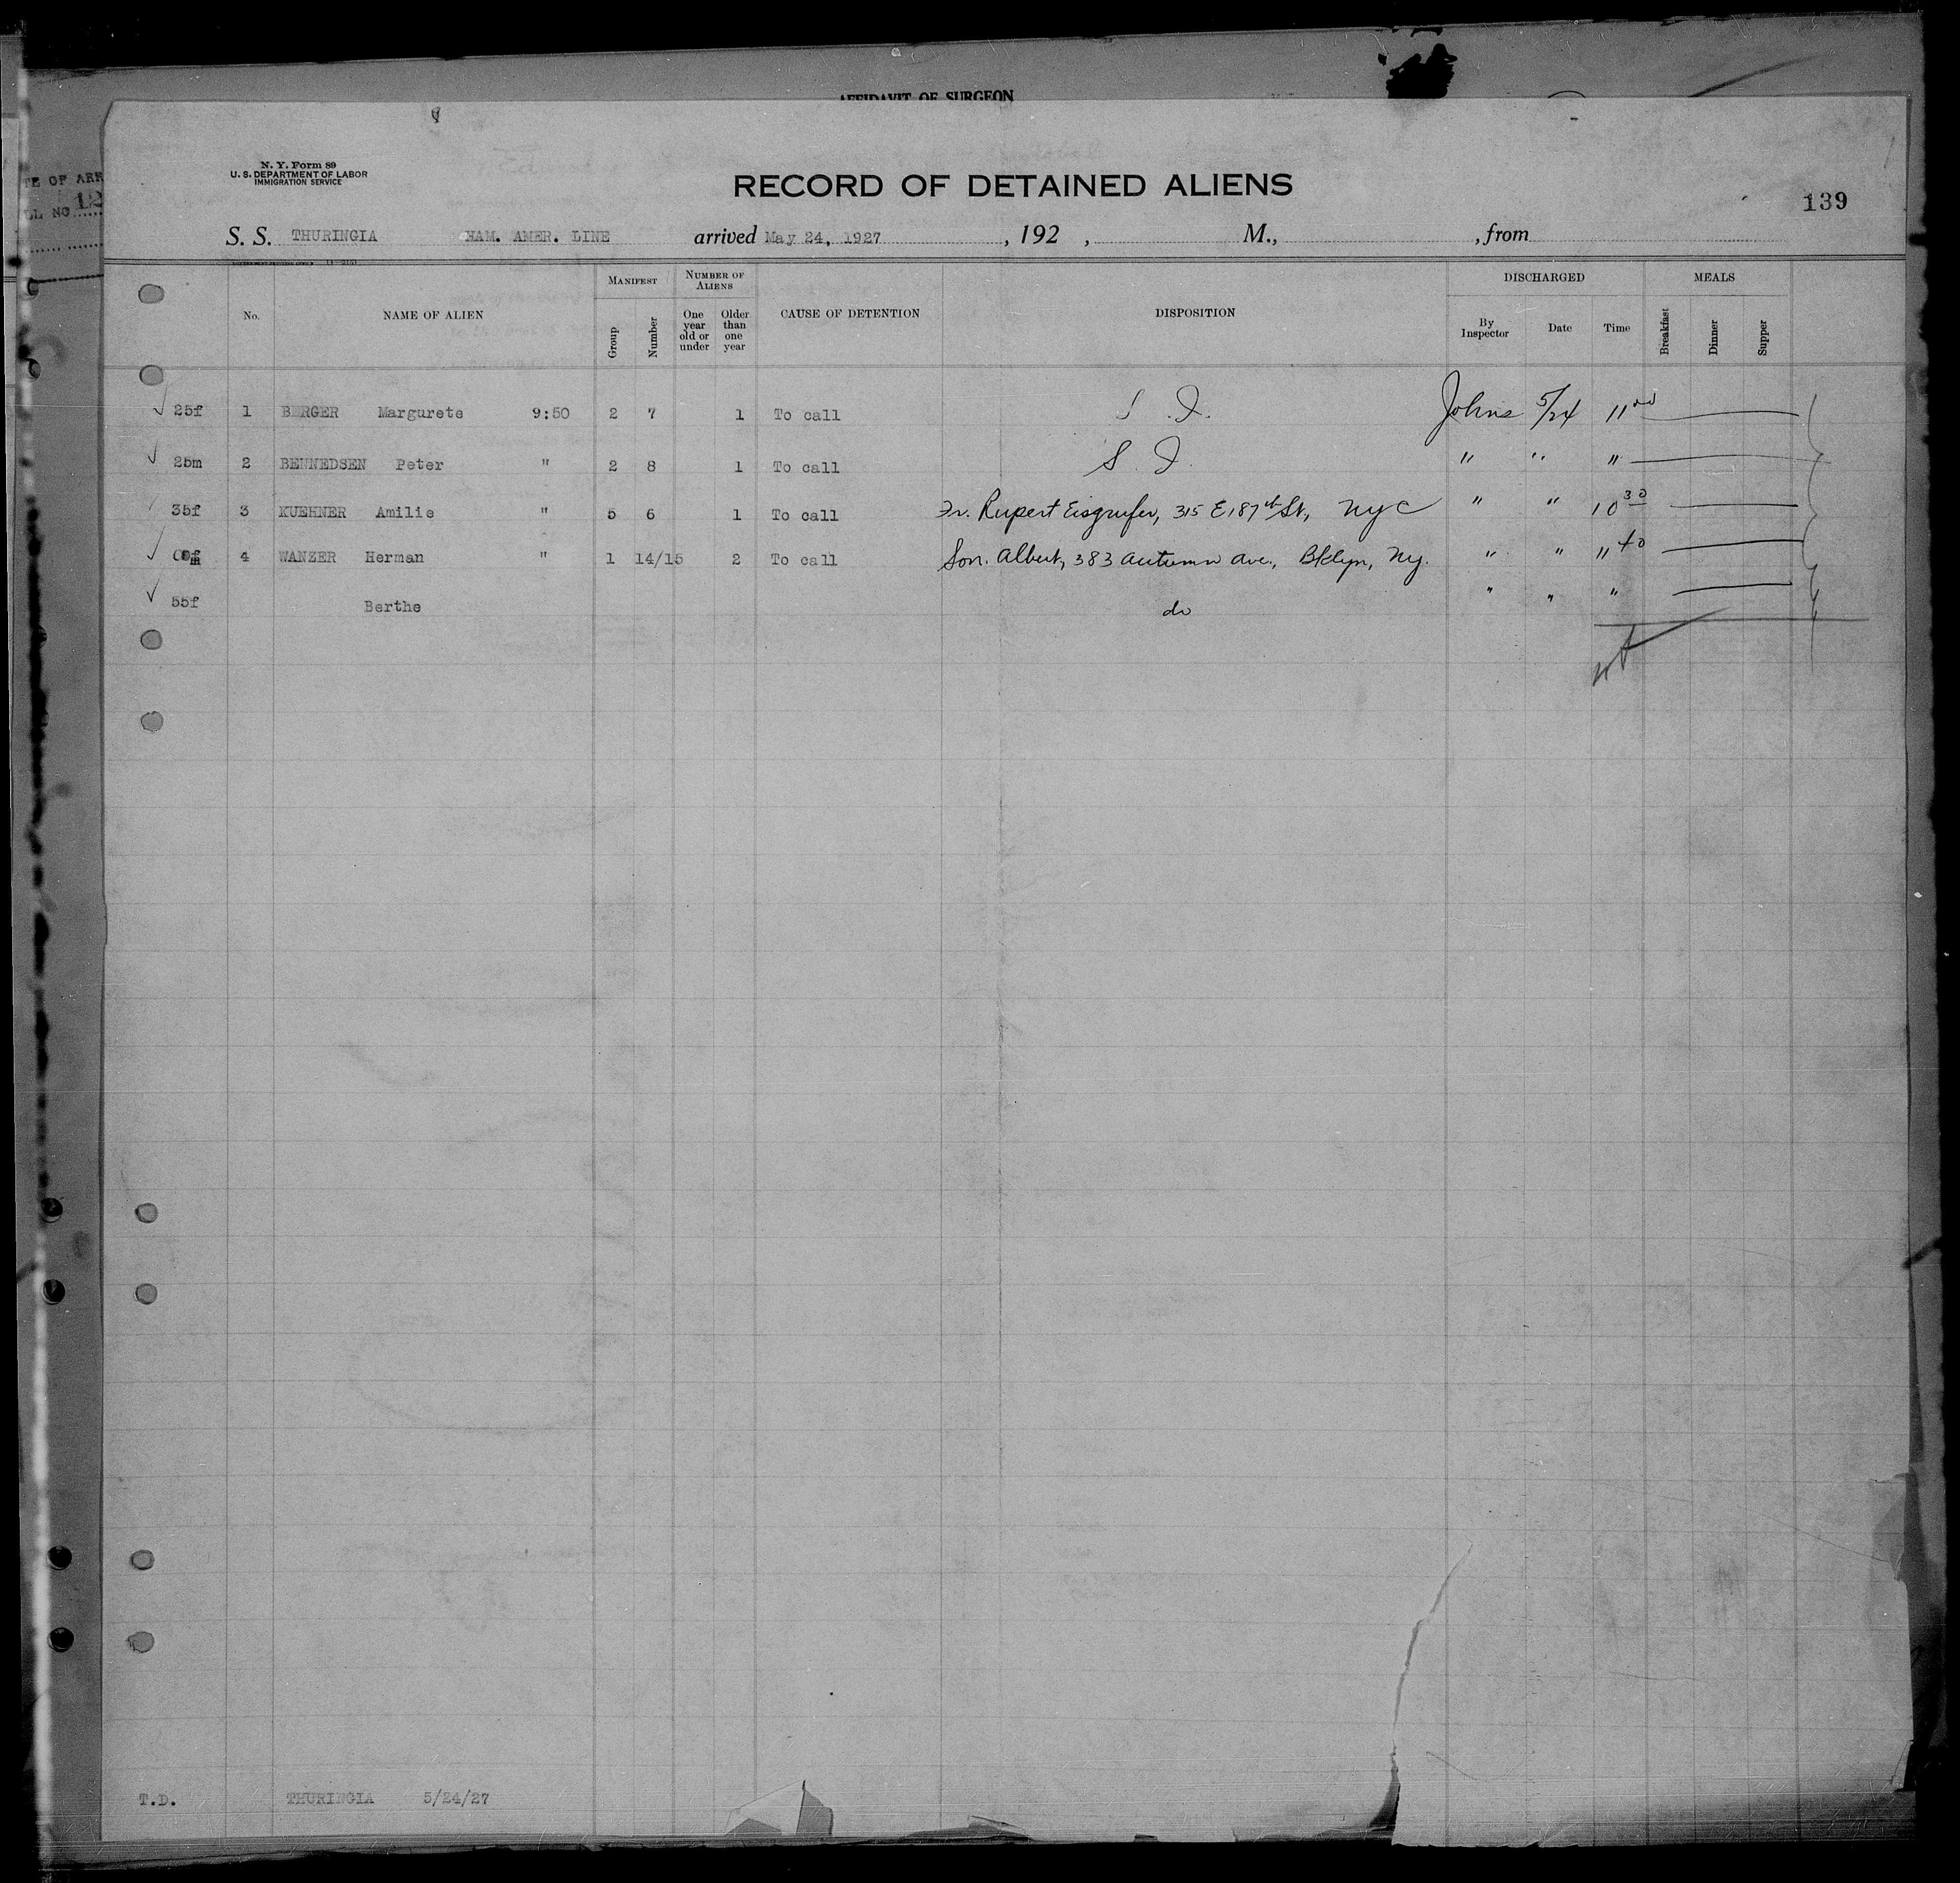 AFFIDAVIT OF SURGEON
N. Y. Form 89
U. S. DEPARTMENT OF LABOR
IMMIGRATION SERVICE
RECORD OF DETAINED ALIENS
139
S. S. THURINGIA HAM. AMER. LINE arrived May 24, 1927, 192 , M., , from
No. NAME OF ALIEN MANIFEST Group Number NUMBER OF ALIENS One year old or under Older than one year CAUSE OF DETENTION DISPOSITION DISCHARGED By Inspector Date Time MEALS Breakfast Dinner Supper
25f 1 BERGER Margurete 9:50 2 7 1 To call S. I. Johns 5/24 11 00
25m 2 BENNEDSEN Peter " 2 8 1 To call S. I. " " "
35f 3 KUEHNER Amilie " 5 6 1 To call Fr. Rupert 315 E 187th St, NYC " " 10 30
m 4 WANZER Herman " 1 14/15 2 To call Son. Albert, 383 Autumn Ave., Bklyn, Ny. " " 11 40
55f Berthe do " " "
T.D. THURINGIA 5/24/27